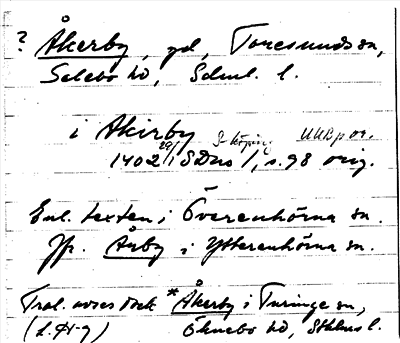 ? Åkerby, gd, Toresunds sn,
Selebo hd, Södml. l.
i Akirby S-köping UUB p or.
1402 29/1 SDns 1, s. 98 orig.
Enl. texten i Överenhörna sn.
Jfr. Åby i Ytterenhörna sn.
Trol. avses dock *Åkerby i Turinge sn,
Öknebo hd, Sthlms l.